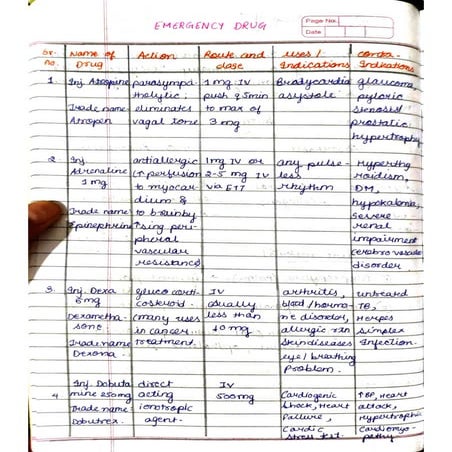 EMERGENCY DRUG
Page No.
Date
Sr. No.
Name of Drug
Action
Route and dose
uses / Indications
contra-Indications
1.
Inj. Atropine
Trade name
Atropen
parasympa
tholytic;
eliminates
vagal tone
1 mg IV
push q 5min
to max of
3 mg
Bradycardia
asystole
glaucoma,
pyloric
stenosis
prostatic
hypertrophy
2.
Inj.
Adrenaline
1 mg
Trade name
Epinephrine
antiallergic
(↑ perfusion
to myocar
dium &
to brain by
↑sing peri-
pheral
vascular
resistance)
1mg IV or
2-5 mg IV
via ETT
any pulse-
less
rhythm
Hyperthy
roidism,
DM,
hypokalomia,
severe
renal
impairment
cerebro vascular
disorder
3.
Inj. Dexa
8mg
Dexametha-
sone.
Trade name
Dexona.
gluco corti-
costroid.
(many uses
in cancer
treatment.
IV
usually
less than
10 mg
arthritis,
blood/hormo-
ne disorder,
allergic rxn
skin diseases
eye/breathing
Problem.
TB,
Herpes
simplex
Infection.
4
Inj. Dobuta
mine 250mg
Trade name:
Dobutrex.
direct
acting
ionotropic
agent.
IV
500mg
Cardiogenic
shock, Heart
Failure,
Cardic
stress test.
↑BP, Heart
attack,
Hypertrophic
Cardiomyo-
pathy